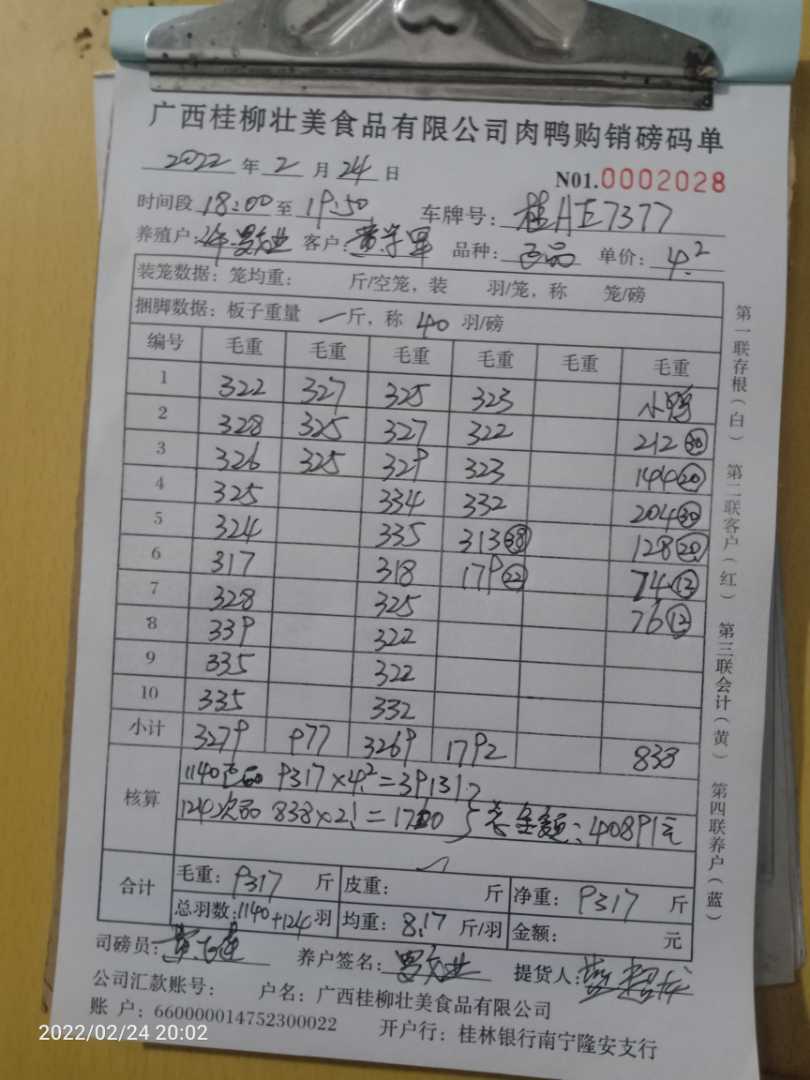 广西桂柳壮美食品有限公司肉鸭购销磅码单
2022 年 2 月 24 日 N01.0002028
时间段 18:00 至 19:50 车牌号: 桂AE7377
养殖户: 客户: 黄 军 品种: 正品 单价: 4.2
装笼数据: 笼均重: 斤/空笼, 装 羽/笼, 称 笼/磅
捆脚数据: 板子重量 一 斤, 称 40 羽/磅
编号 毛重 毛重 毛重 毛重 毛重 毛重
1 322 327 325 323 小鸭
2 328 325 327 322 212 (30)
3 326 325 329 323 144 (20)
4 325 334 332 204 (30)
5 324 335 313 (38) 128 (20)
6 317 318 179 (22) 74 (12)
7 328 325 76 (12)
8 339 322
9 335 322
10 335 332
小计 3279 977 3269 1792 838
核算 1140正品 9317×4.2=39131
124次品 838×2.1=1760 金额: 40891元
合计 毛重: 9317 斤 皮重: 斤 净重: 9317 斤
总羽数: 1140+124 羽 均重: 8.17 斤/羽 金额: 元
司磅员: 养户签名: 提货人:
公司汇款账号: 户名: 广西桂柳壮美食品有限公司
账 户: 660000014752300022 开户行: 桂林银行南宁隆安支行
第一联存根(白) 第二联客户(红) 第三联会计(黄) 第四联养户(蓝)
2022/02/24 20:02